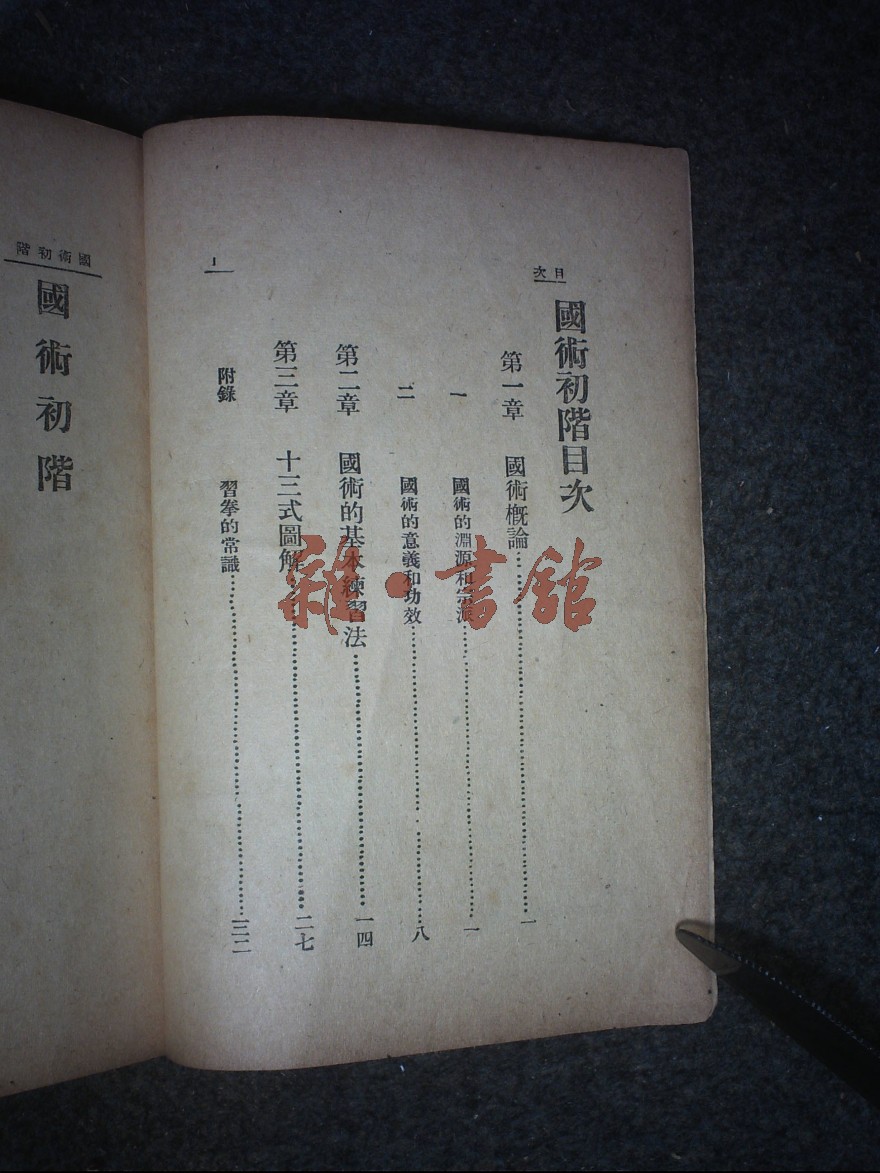 目次
國術初階目次
第一章 國術概論……一
一 國術的淵源和宗派……一
二 國術的意義和功效……八
第二章 國術的基本練習法……一四
第三章 十三式圖解……二七
附錄 習拳的常識……一三二
1
國術初階
國術初階
雜·書館